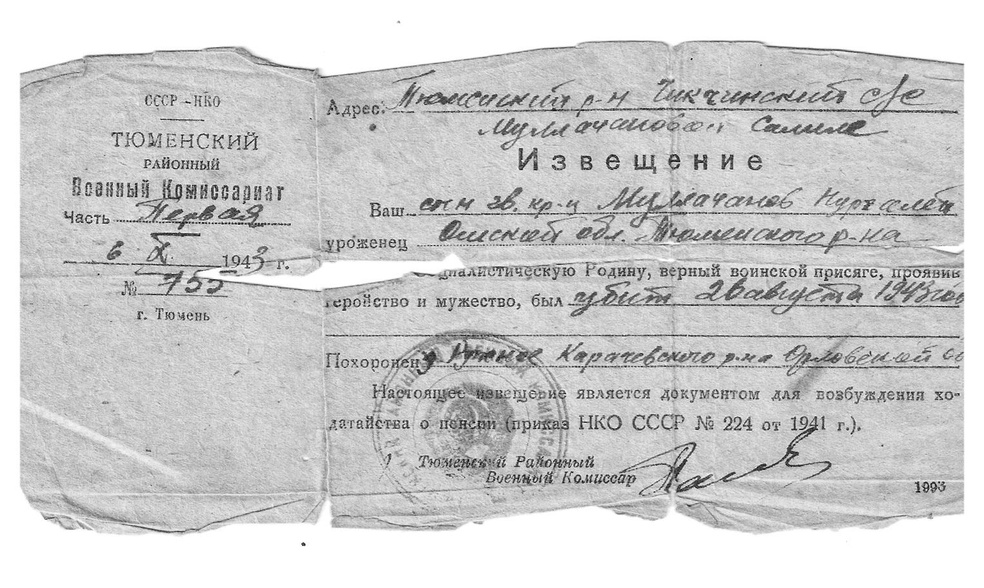 СССР - НКО
ТЮМЕНСКИЙ
РАЙОННЫЙ
Военный Комиссариат
Часть Первая
6 X 1943 г.
№ 755
г. Тюмень
Адрес: Тюменский р-н Чикчинский с/с
Муллачановой Салиме
Извещение
Ваш сын гв. кр-ц Муллачанов Нургалей
уроженец Омской обл. Тюменского р-на
социалистическую Родину, верный воинской присяге, проявив
геройство и мужество, был убит 20 августа 1943 го
Похоронен Карачевского р-на Орловской
Настоящее извещение является документом для возбуждения хо-
датайства о пенсии (приказ НКО СССР № 224 от 1941 г.).
Тюменский Районный
Военный Комиссар
1993